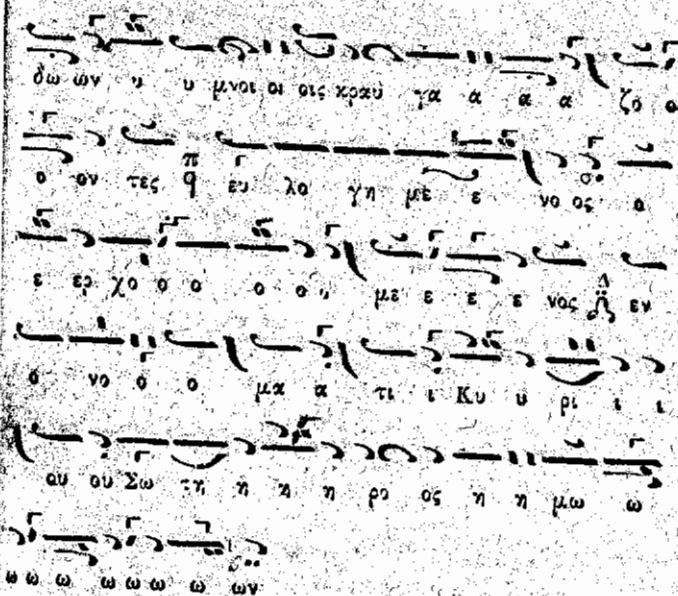 δω ων υ υ μνοι οι οις κραυ γα α α α ζο ο
ο ον τες ευ λο γη με ε νο ος ο
ε ερ χο ο ο ο ο με ε ε ε νος εν
ο νο ο ο μα α τι ι Κυ υ ρι ι ι
ου ου Σω τη η η η ρο ος η η μω ω
ω ω ω ω ω ω ω ων